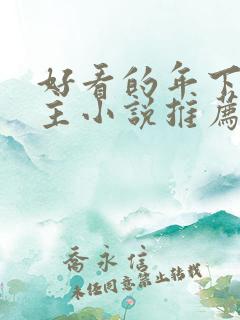 好看的年下
主小说推薦
喬永信
未经同意禁止转载